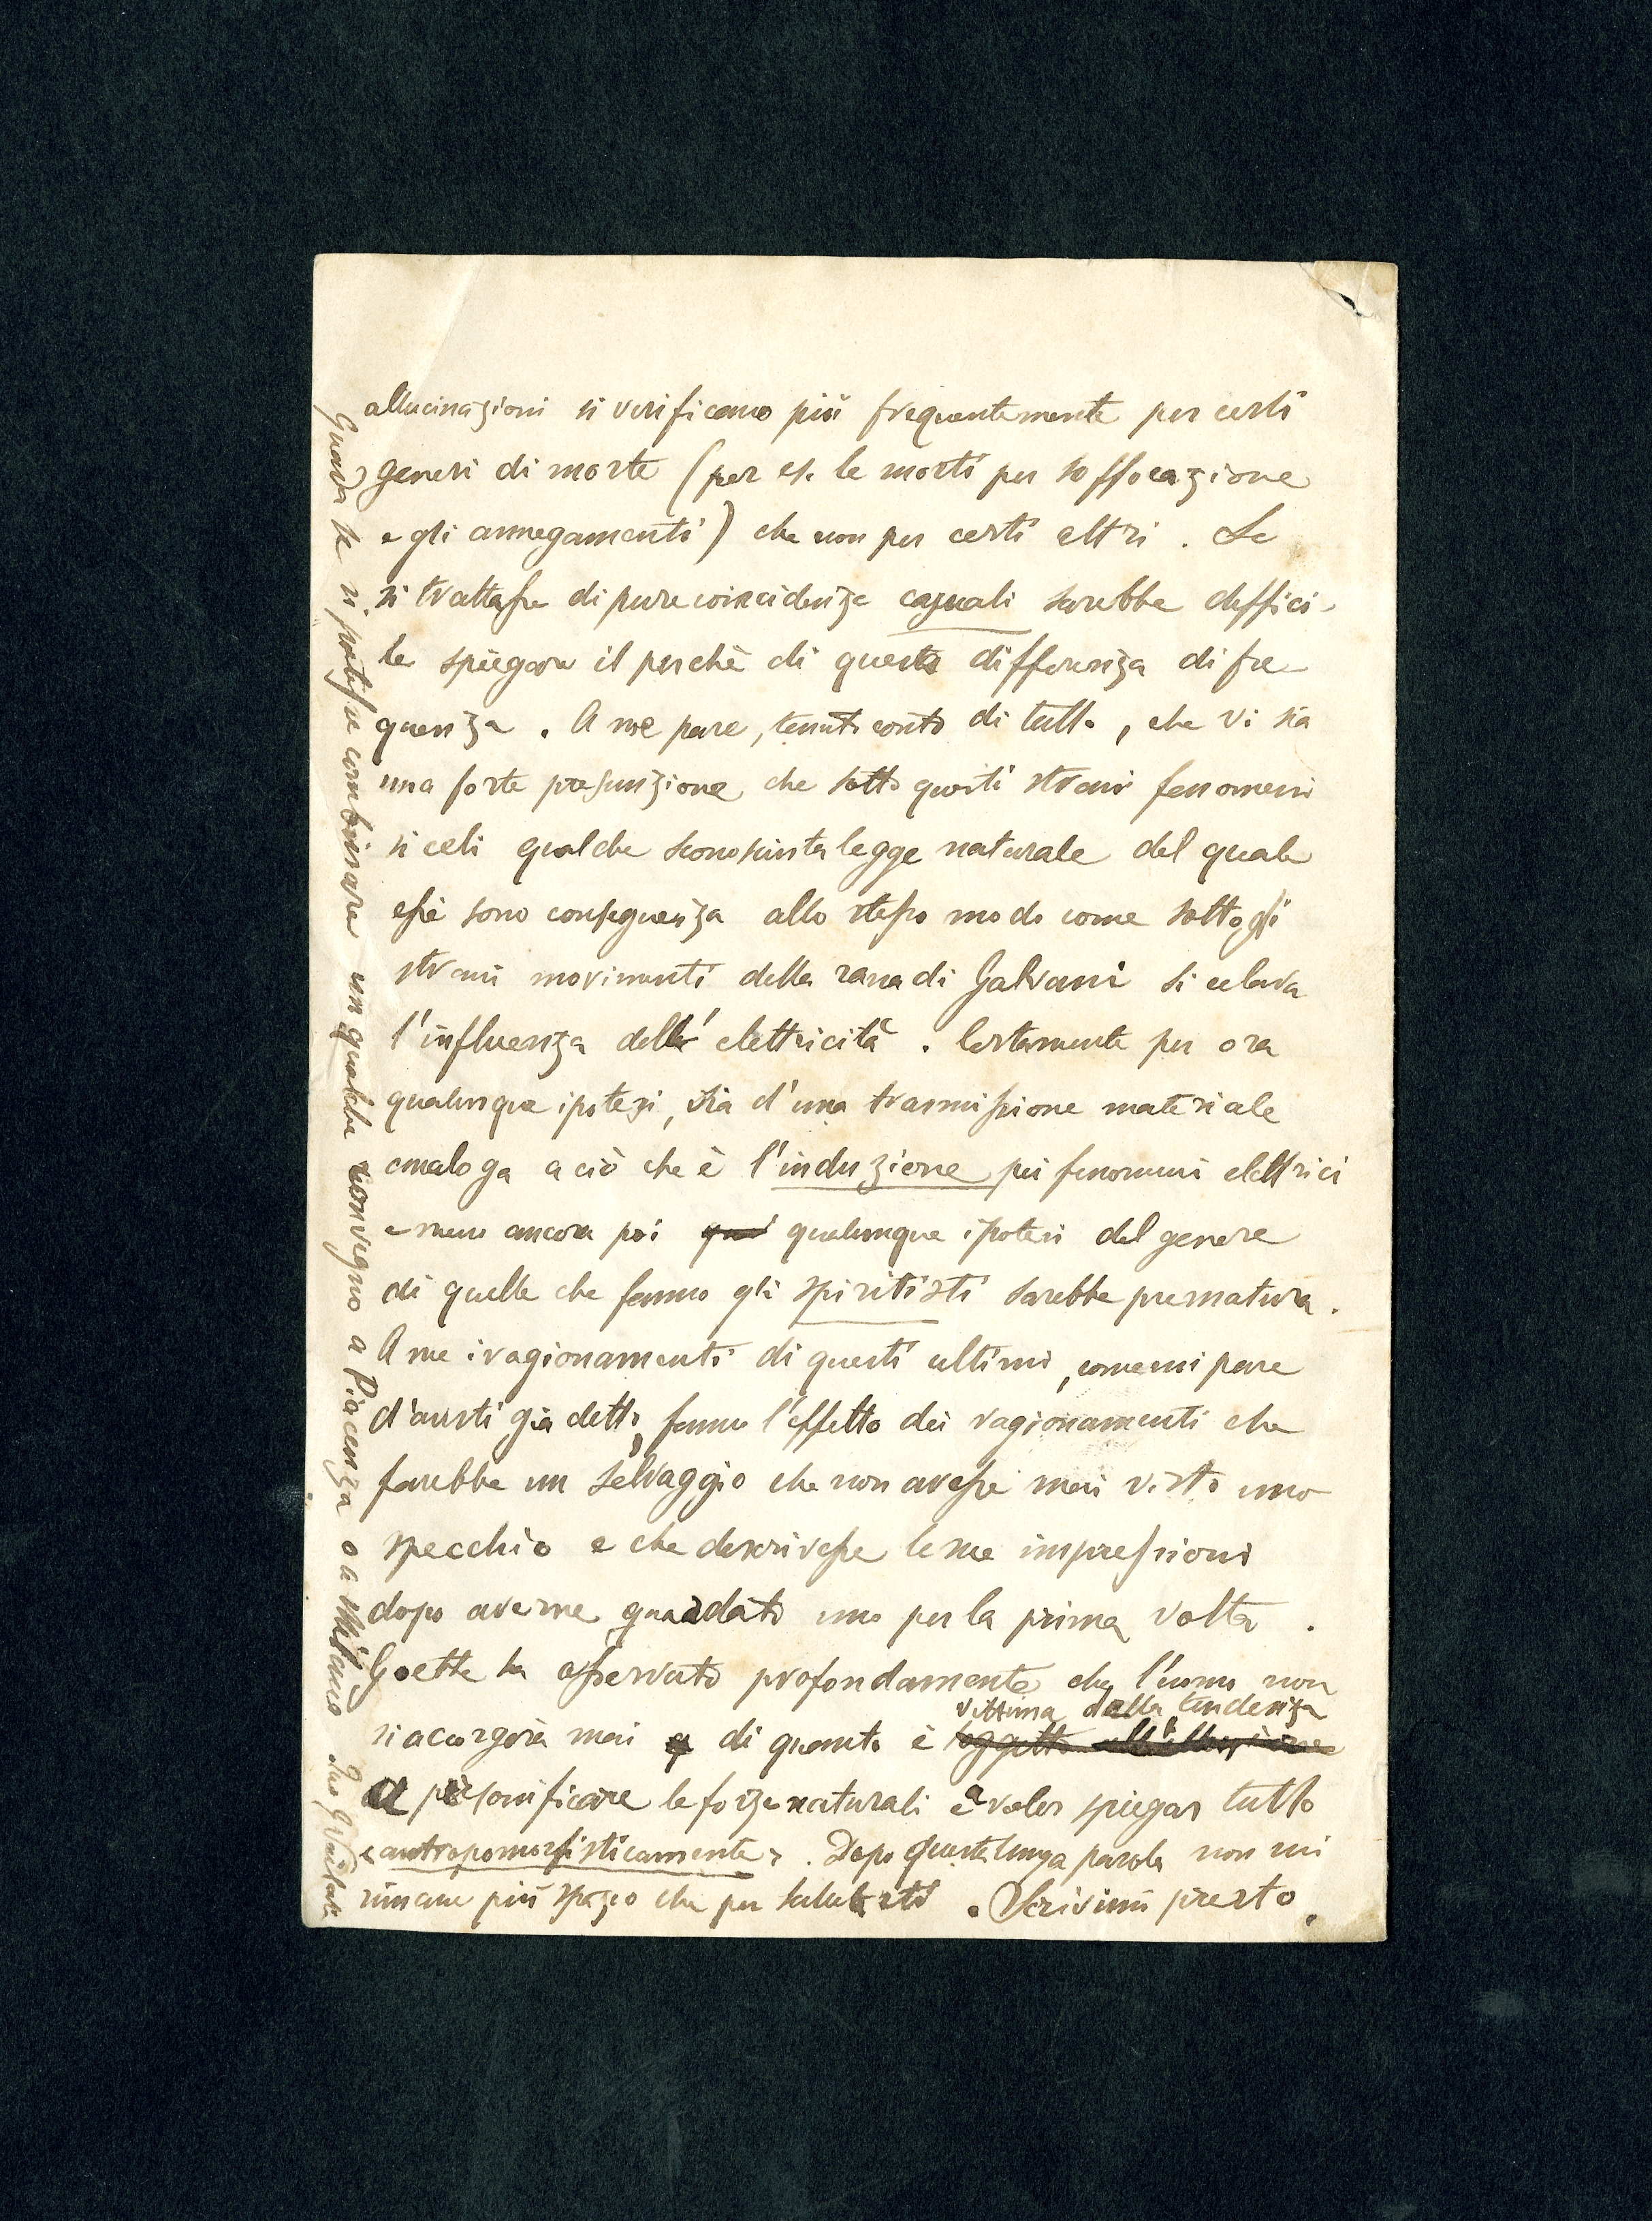 allucinazioni si verificano più frequentemente per certi
generi di morte (per es. le morti per soffocazione
e gli annegamenti) che non per certi altri. Se
si trattasse di pure coincidenze casuali sarebbe diffici-
le spiegare il perchè di questa differenza di fre
quenza. A me pare, tenuto conto di tutto, che vi sia
una forte presunzione che sotto questi strani fenomeni
si celi qualche sconosciuta legge naturale del quale
essi sono conseguenza allo stesso modo come sotto gli
strani movimenti della rana di Galvani si celava
l'influenza dell'elettricità. Certamente per ora
qualunque ipotesi, sia d'una trasmissione materiale
analoga a ciò che è l'induzione pei fenomeni elettrici
e meno ancora poi qualunque ipotesi del genere
di quelle che fanno gli spiritisti sarebbe prematura.
A me i ragionamenti di questi ultimi, come mi pare
d'averti già detto, fanno l'effetto dei ragionamenti che
farebbe un selvaggio che non avesse mai visto uno
specchio e che descrivesse le sue impressioni
dopo averne guardato uno per la prima volta.
Goethe ha osservato profondamente che l'uomo non
vittima della tendenza
si accorgerà mai di quanto è soggetto all'illusione
a personificare le forze naturali e a voler spiegar tutto
"antropomorfisticamente". Dopo questa lunga parola non mi
rimane più spazio che per salutarti. Scrivimi presto.
Guarda se si potesse combinare un qualche convegno a Piacenza o a Milano tuo G Vailati